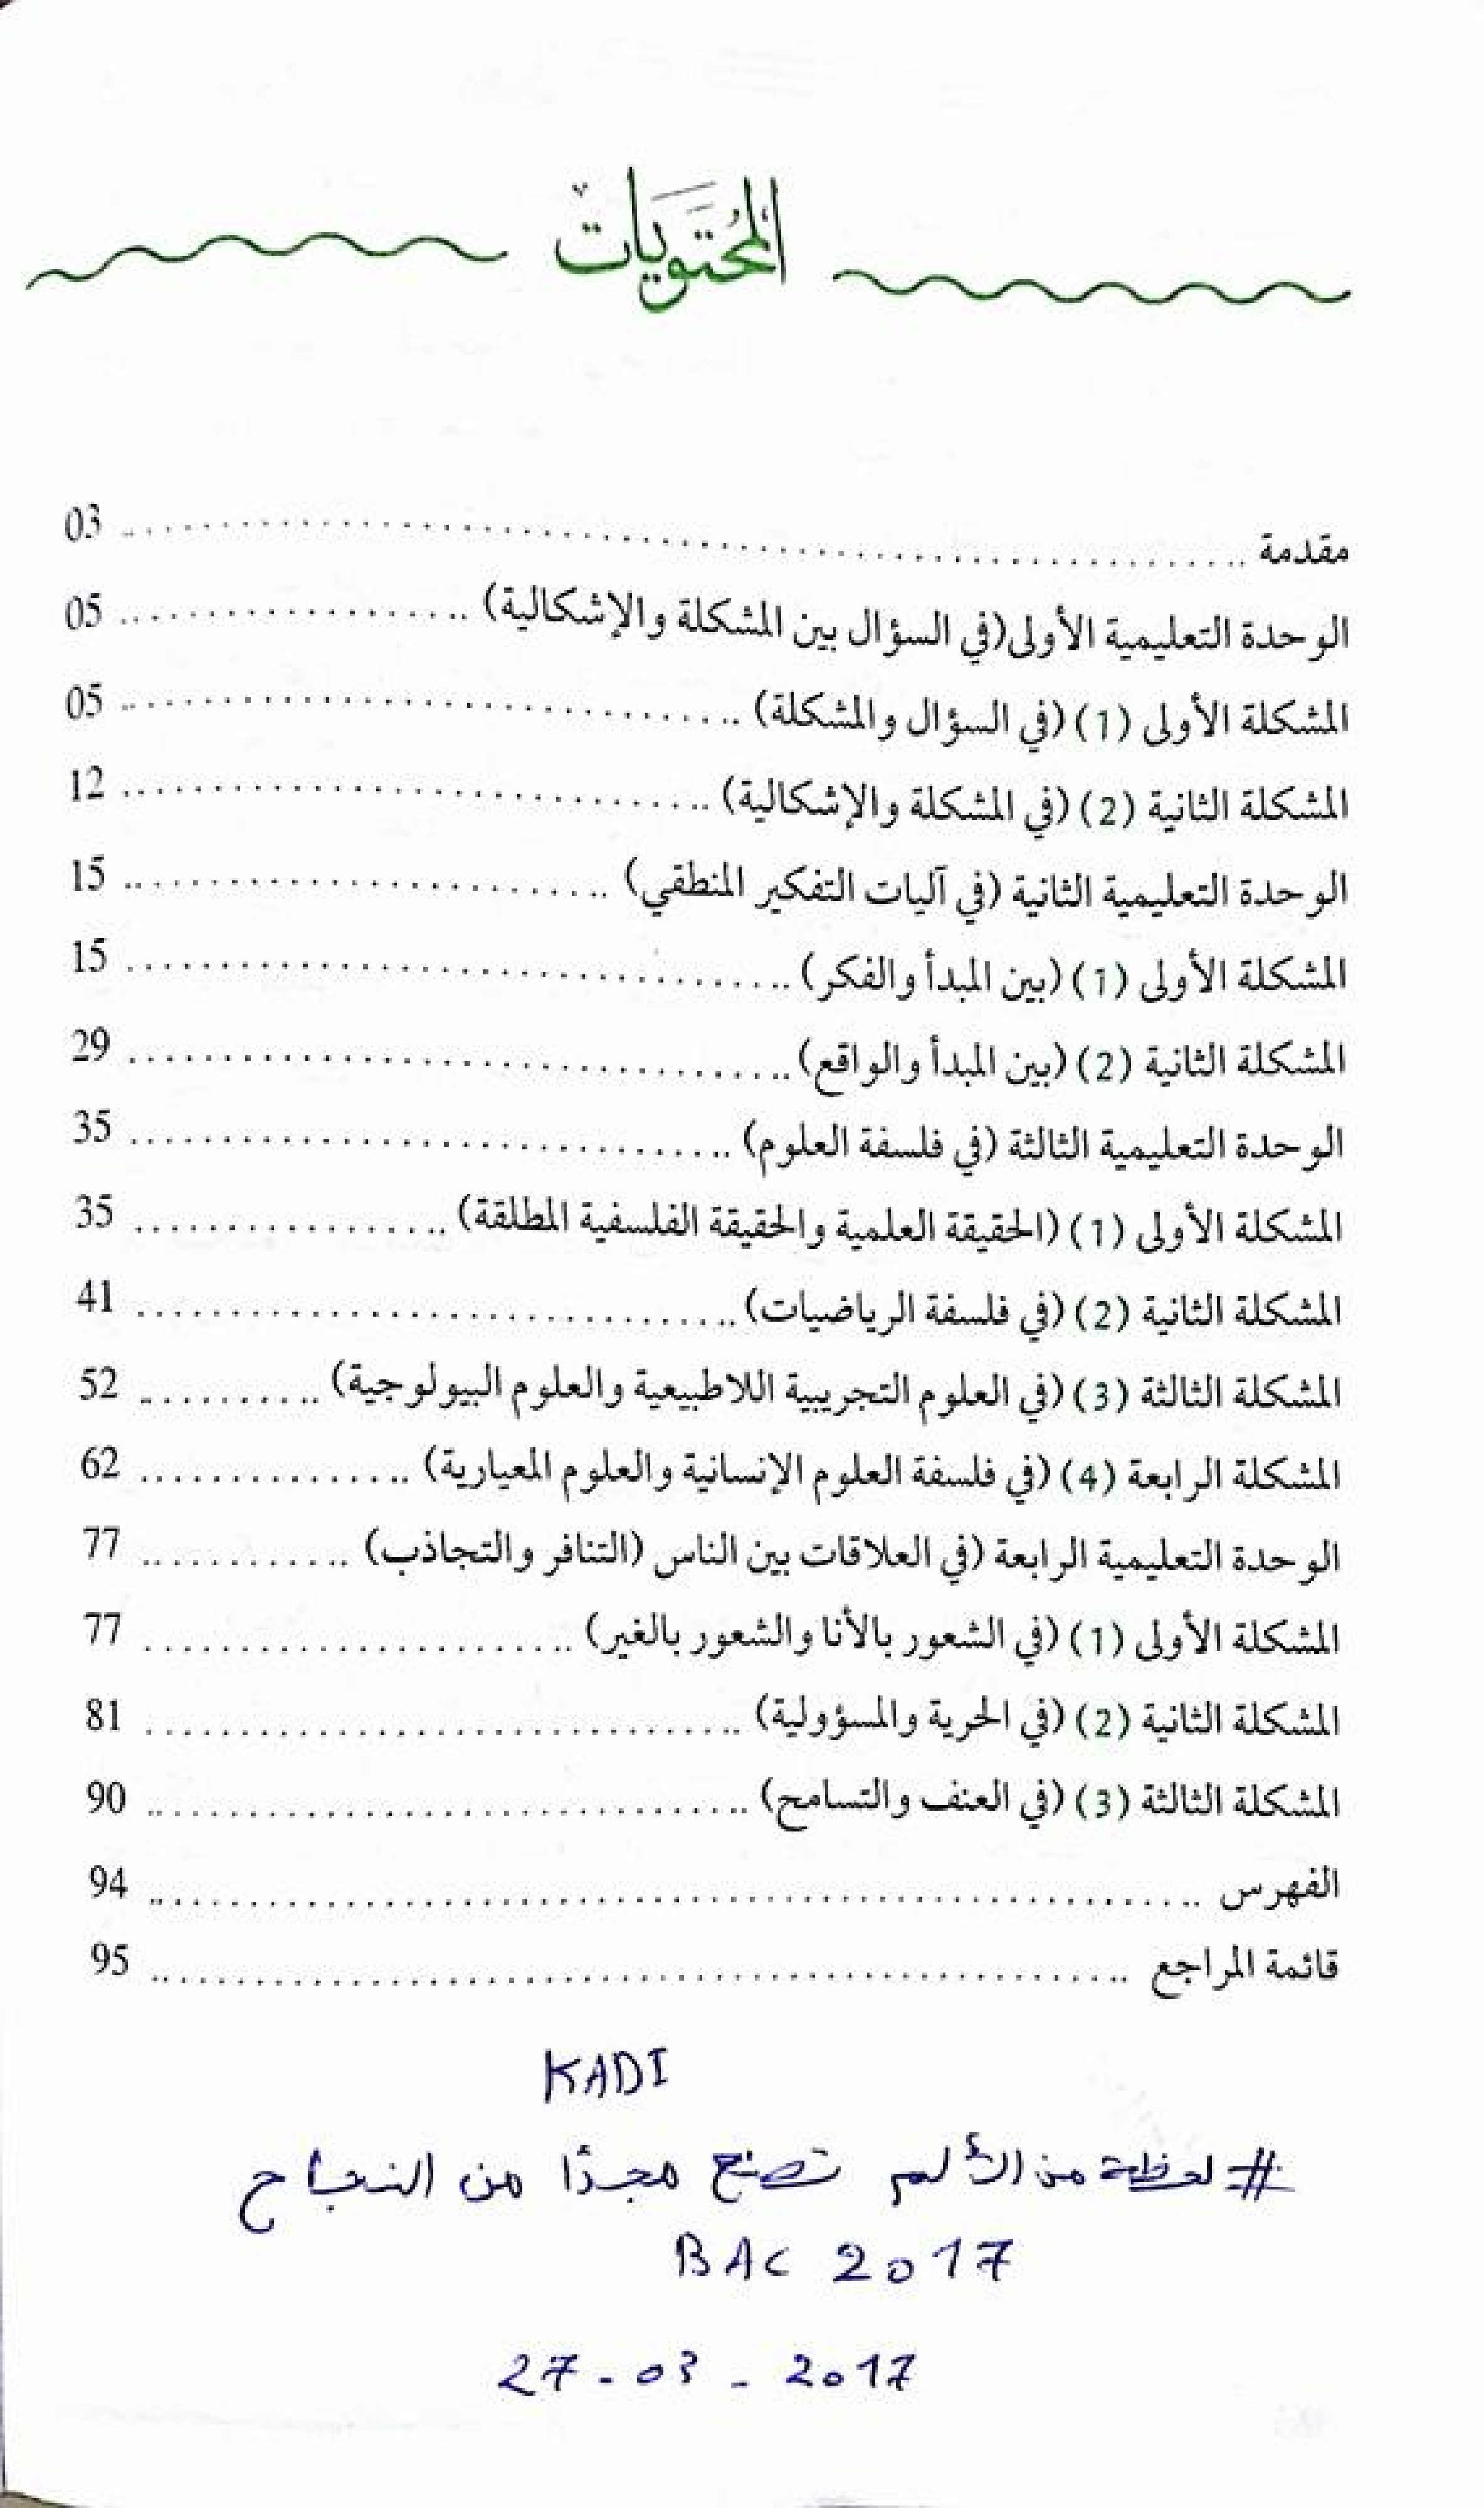 المُحتَويات
مقدمة .......... 03
الوحدة التعليمية الأولى(في السؤال بين المشكلة والإشكالية) .......... 05
المشكلة الأولى (1) (في السؤال والمشكلة) .......... 05
المشكلة الثانية (2) (في المشكلة والإشكالية) .......... 12
الوحدة التعليمية الثانية (في آليات التفكير المنطقي) .......... 15
المشكلة الأولى (1) (بين المبدأ والفكر) .......... 15
المشكلة الثانية (2) (بين المبدأ والواقع) .......... 29
الوحدة التعليمية الثالثة (في فلسفة العلوم) .......... 35
المشكلة الأولى (1) (الحقيقة العلمية والحقيقة الفلسفية المطلقة) .......... 35
المشكلة الثانية (2) (في فلسفة الرياضيات) .......... 41
المشكلة الثالثة (3) (في العلوم التجريبية اللاطبيعية والعلوم البيولوجية) .......... 52
المشكلة الرابعة (4) (في فلسفة العلوم الإنسانية والعلوم المعيارية) .......... 62
الوحدة التعليمية الرابعة (في العلاقات بين الناس (التنافر والتجاذب) .......... 77
المشكلة الأولى (1) (في الشعور بالأنا والشعور بالغير) .......... 77
المشكلة الثانية (2) (في الحرية والمسؤولية) .......... 81
المشكلة الثالثة (3) (في العنف والتسامح) .......... 90
الفهرس .......... 94
قائمة المراجع .......... 95
KADI
# لحظة من الألم تصنع مجدًا من النجاح
BAC 2017
27 - 03 - 2017